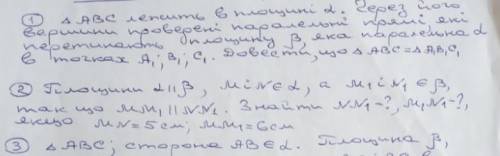 ① △ABC лежить в площині α. Через його
вершини проверені паралельні прямі які
перетинають площину β, яка паралельна α
в точках A₁; B₁; C₁. Довести, що △ABC=△A₁B₁C₁
② Площини α∥β, M і N∈α, а M₁ і N₁ ∈ β,
так що MM₁ ∥ NN₁. Знайти NN₁-?, M₁N₁-?,
якщо MN=5см; MM₁=6см
③ △ABC; сторона AB∈α. Площина β,